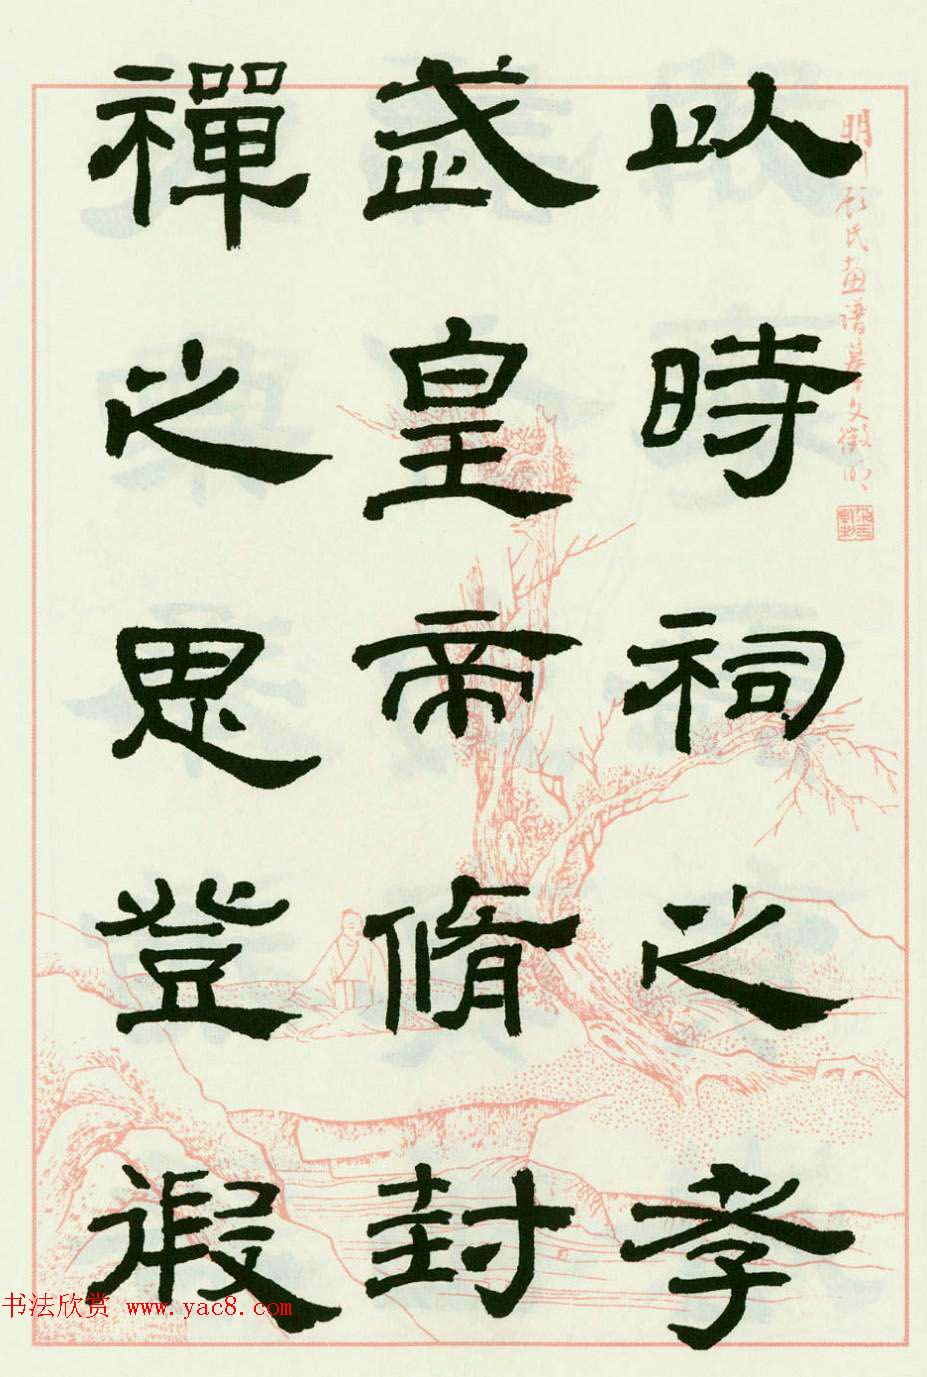 以時祠之孝
武皇帝脩封
禪之思登徦
明刊顧氏畫譜摹文徵明
书法欣赏 www.yac8.com